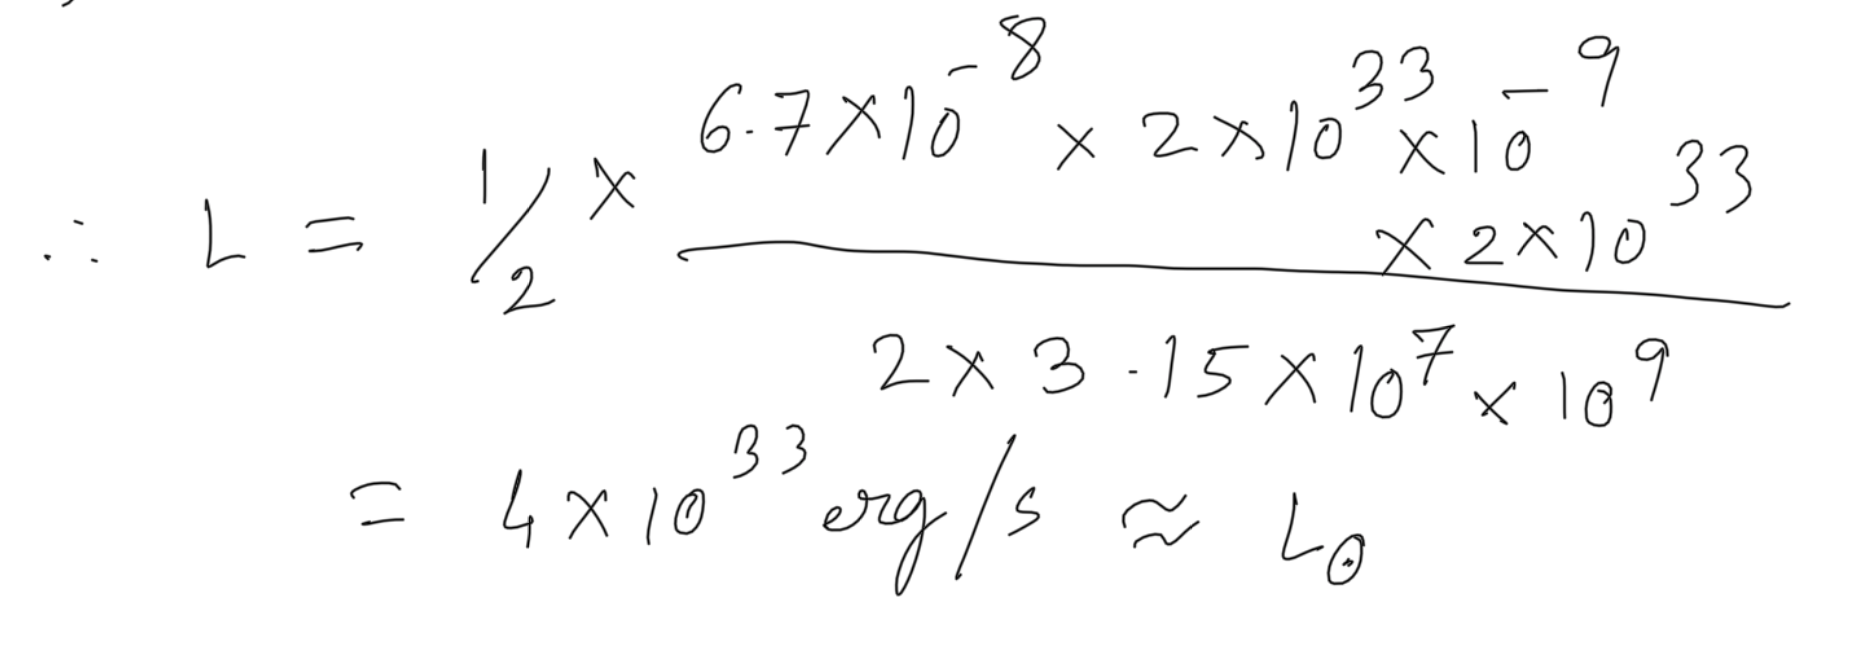 ∴ L = 1/2 × 6.7×10⁻⁸ × 2×10³³ × 10⁻⁹
× 2×10³³
2 × 3.15×10⁷ × 10⁹
= 4×10³³ erg/s ≈ L⊙